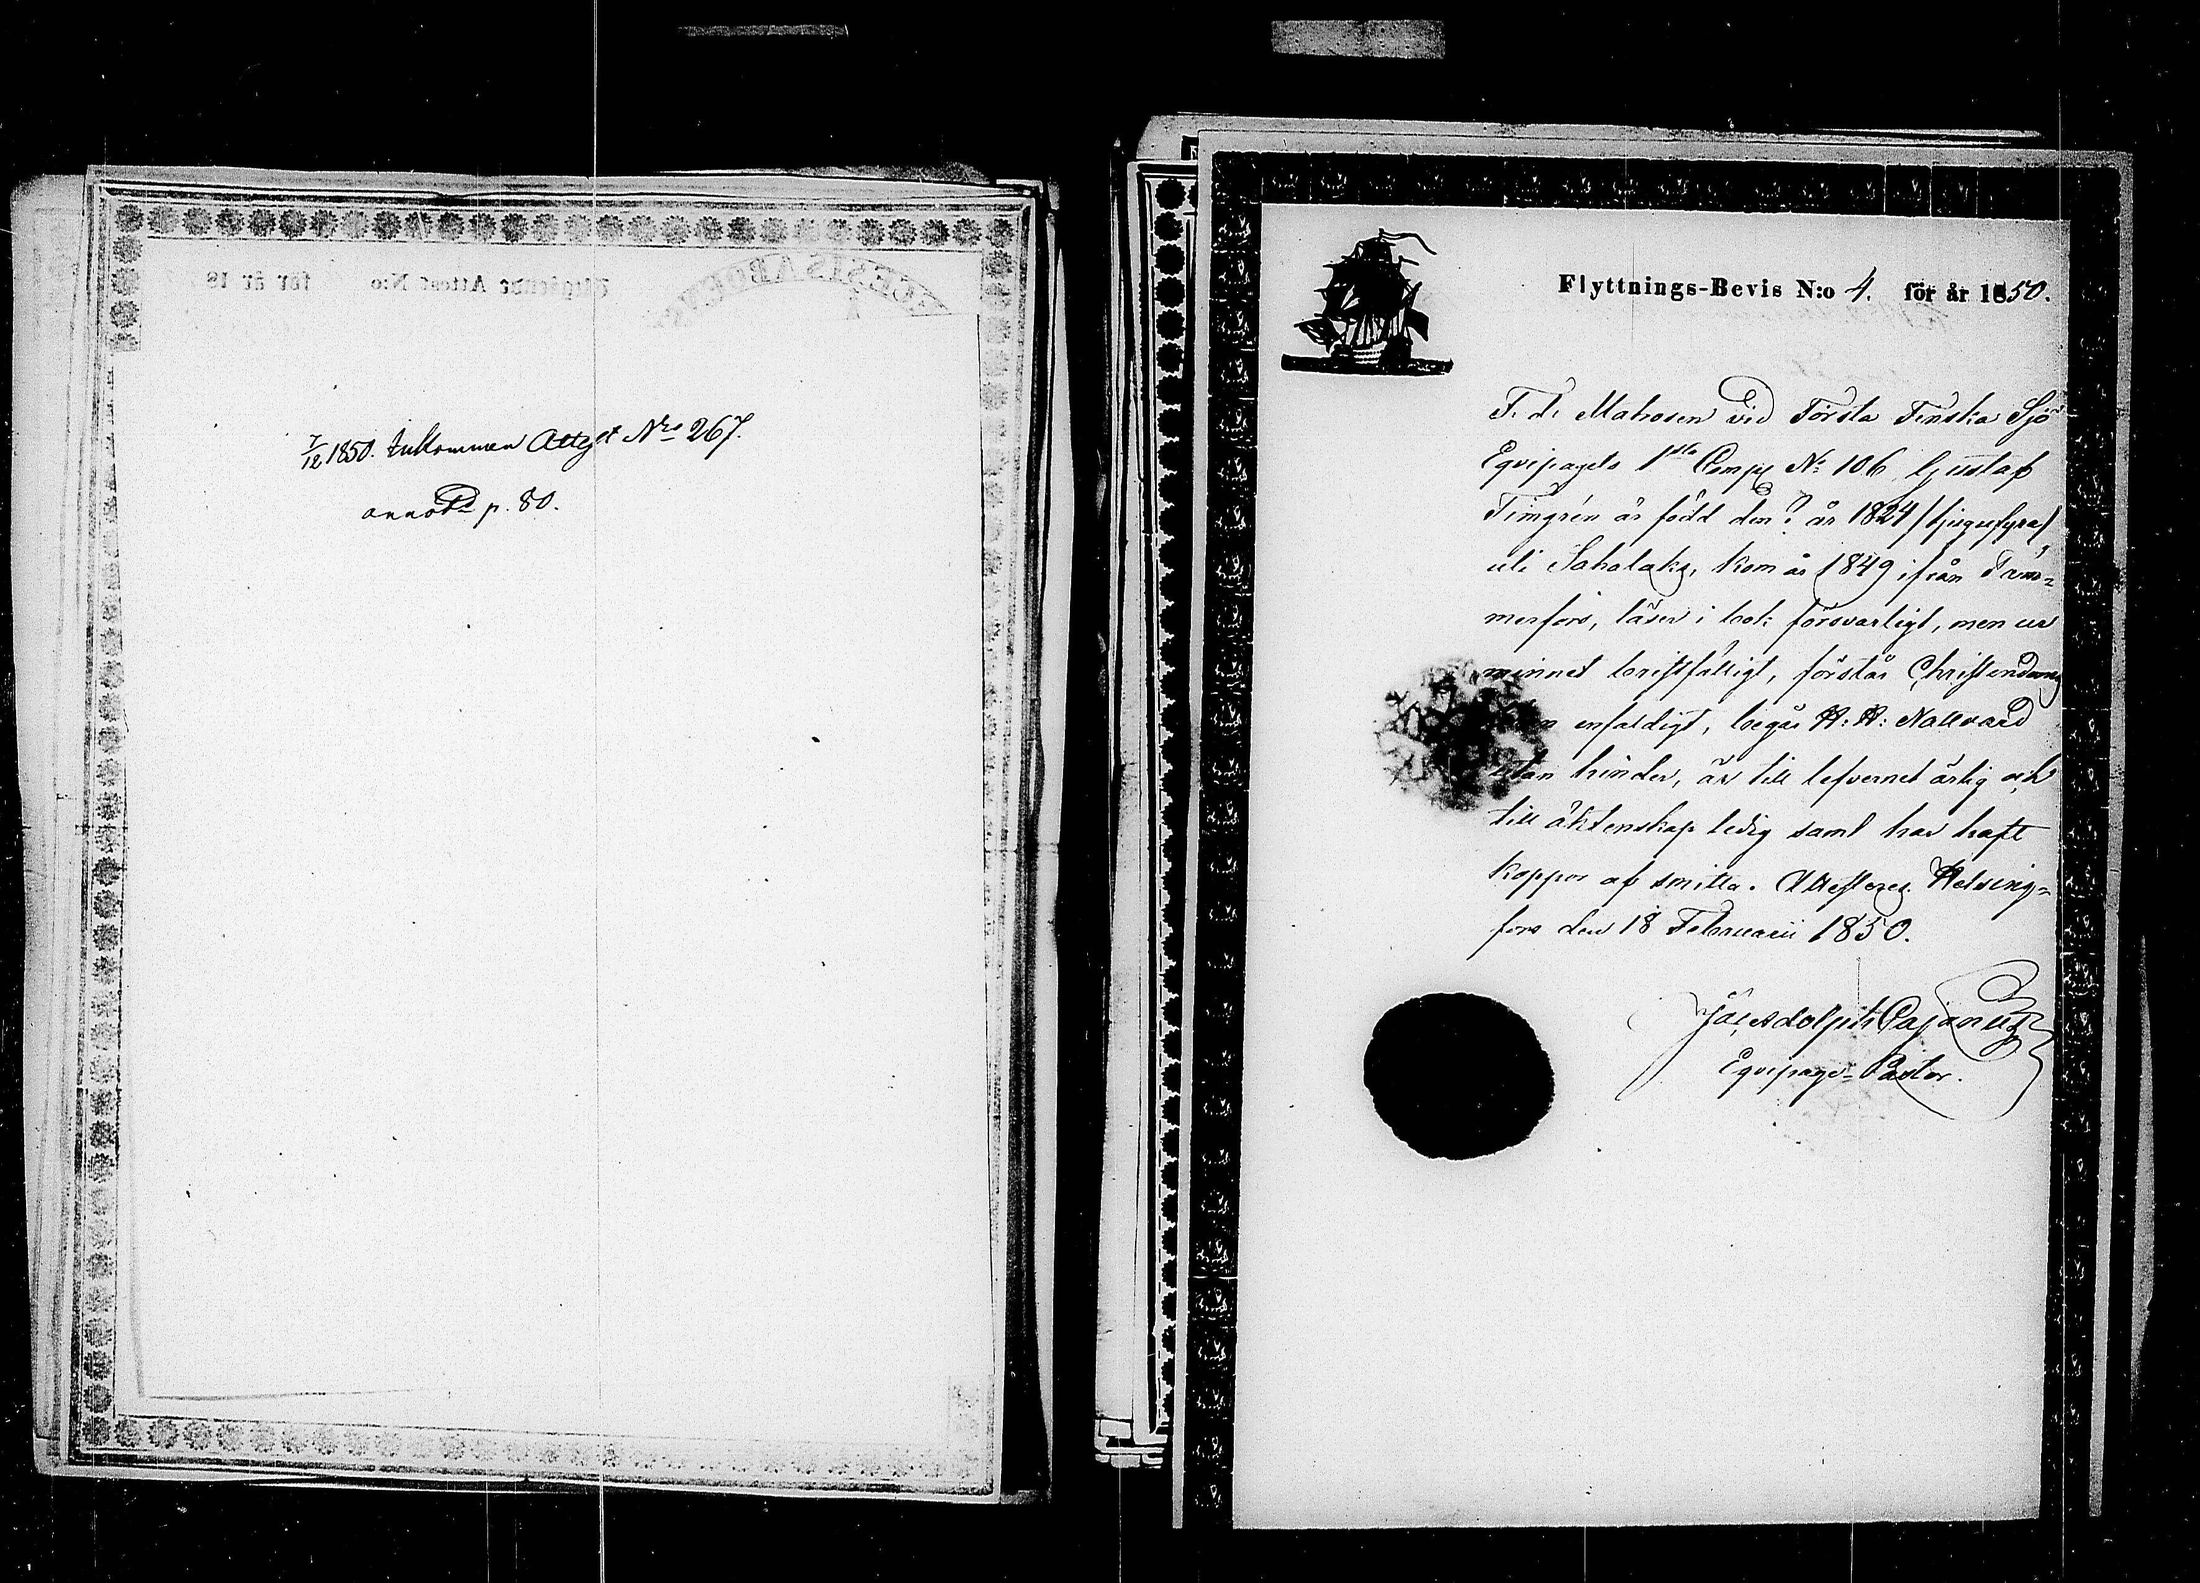 7/12 1850. Inkommen Attest Nro 267.
annot. p. 80.
Flyttnings-Bevis N:o 4. för år 1850.
F. d. Matrosen vid Första Finska Sjö
Eqvipagets 1sta Comp. No 106 Gustaf
Timgrén är född den ? år 1824 /tjugufyra/
uti Sahalaks, kom år 1849 ifrån Tam=
merfors, läser i bok försvarligt, men ur
minnet bristfälligt, förstår Christendoms
enfaldigt, begår H: H: Nattvard
utan hinder, är till lefvernet ärlig och
till äktenskap ledig samt har haft
koppor af smitta. Attesterar Helsing=
fors den 18 Februarii 1850.
Joh. Adolph Cajanus
Eqvipage-Pastor.